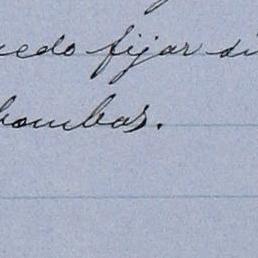 uedo fijar di
bombas.